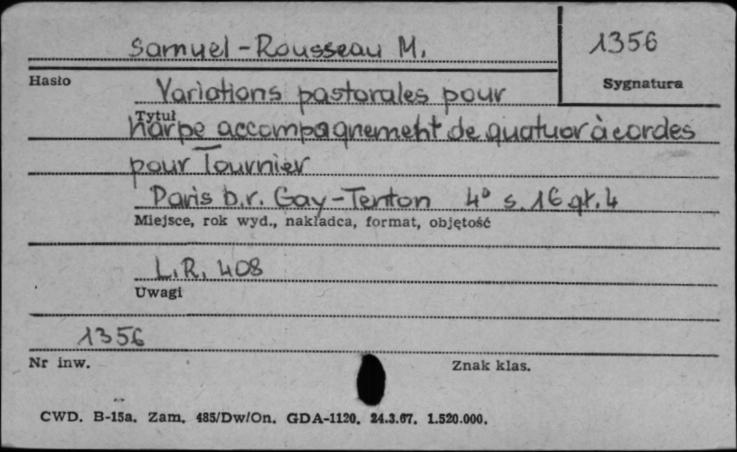 Samuel-Rousseau M.
1356
Hasło
Sygnatura
Variations pastorales pour
Tytuł
harpe accompagnement de quatuor à cordes
pour Tournier
Paris b.r. Gay-Tenton 4° s. 16 gł. 4
Miejsce, rok wyd., nakładca, format, objętość
L.R. 408
Uwagi
1356
Nr inw.
Znak klas.
CWD. B-15a. Zam. 485/Dw/On. GDA-1120. 24.3.67. 1.520.000.